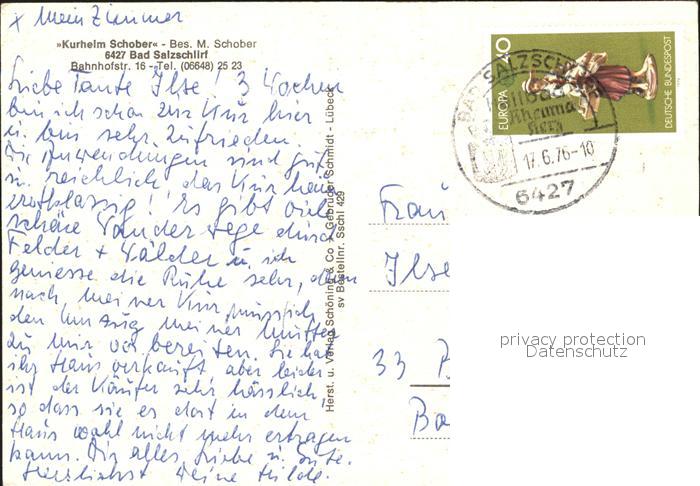 x Mein Zimmer
»Kurheim Schober« - Bes. M. Schober
6427 Bad Salzschlirf
Bahnhofstr. 16 - Tel. (06648) 25 23
Liebe Tante Ilse! 3 Wochen
bin ich schon zur Kur hier
u. bin sehr zufrieden.
Die Anwendungen sind gut
u. reichlich, das Kurhaus
erstklassig! Es gibt viele
schöne Wanderwege durch
Felder + Wälder u. ich
geniesse die Ruhe sehr, denn
nach meiner Kur muss ich
den Umzug meiner Mutter
zu mir vorbereiten. Sie hat
ihr Haus verkauft aber leider
ist der Käufer sehr hässlich,
so dass sie es dort in dem
Haus wohl nicht mehr ertragen
kann. Dir alles Liebe u. Gute.
Herzlichst Deine Hilde.
Herst. u. Verlag Schöning & Co + Gebrüder Schmidt - Lübeck
sv Bestellnr. Sschl 429
EUROPA 40
DEUTSCHE BUNDESPOST
BAD SALZSCHLIRF
Heilbad
Rheuma
17.6.76-10
6427
Frau
Ilse
33 B
Ba
privacy protection
Datenschutz